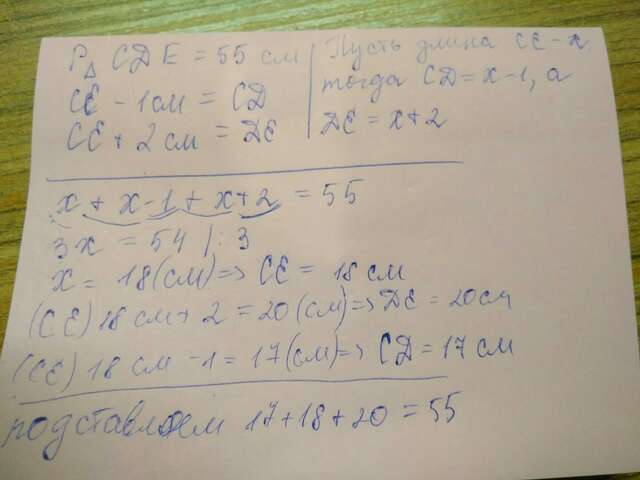 P△ CDE = 55 см
CE - 1см = CD
CE + 2 см = DE
Пусть длина CE - x,
тогда CD = x-1, а
DE = x+2
x + x-1 + x+2 = 55
3x = 54 | : 3
x = 18(см) => CE = 18 см
(CE) 18 см + 2 = 20 (см) => DE = 20см
(CE) 18 см - 1 = 17(см) => CD = 17 см
подставляем 17+18+20 = 55